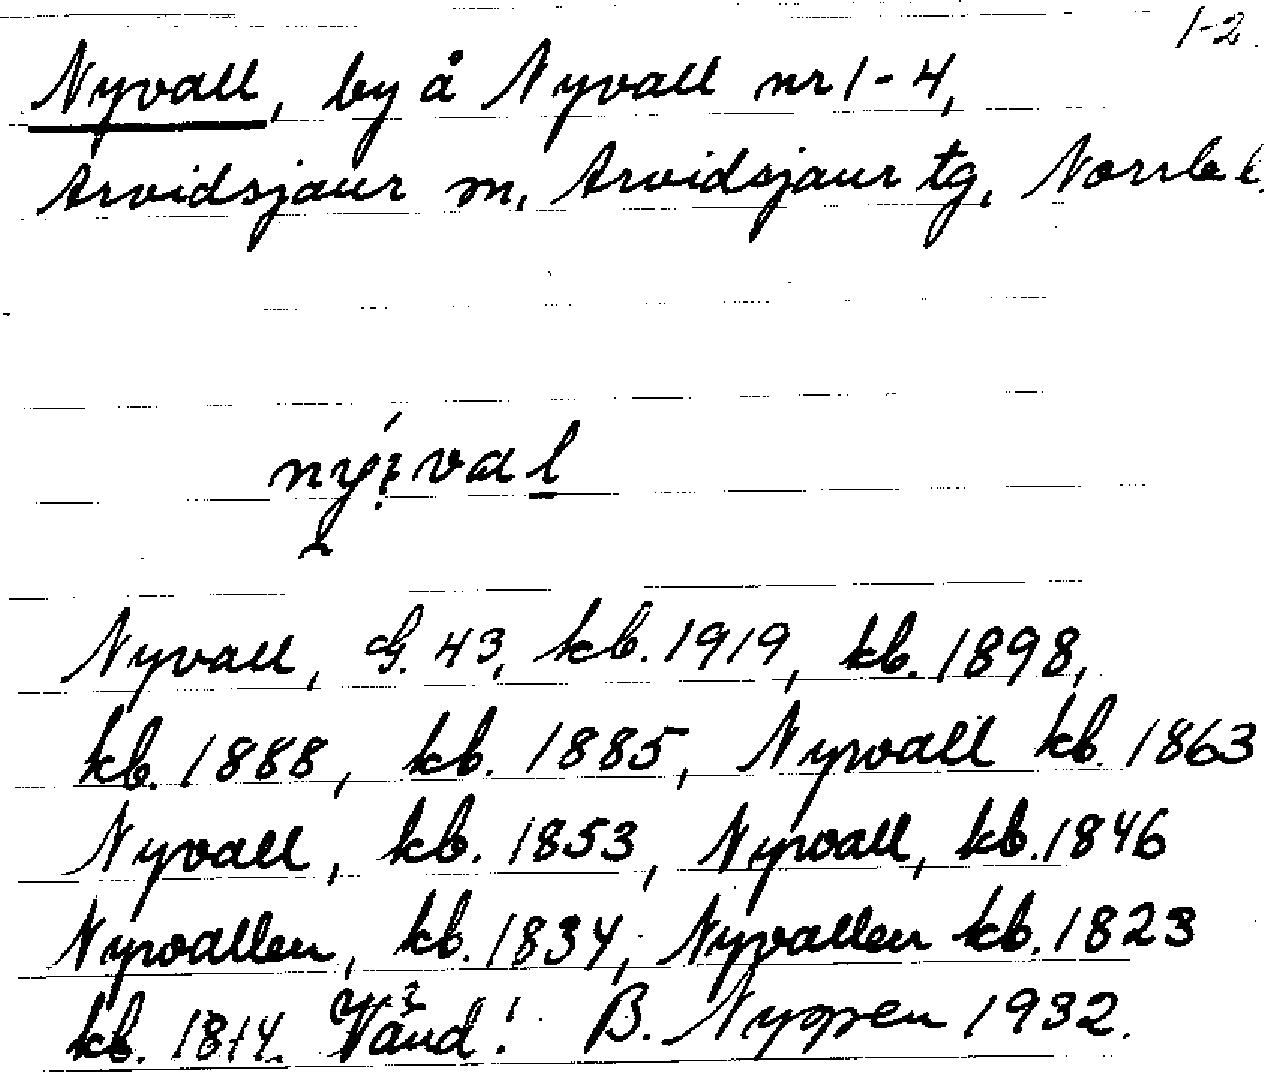 1-2.
Nyvall, by å Nyvall nr 1-4,
Arvidsjaur sn, Arvidsjaur tg, Norrb l.
Nyvall, G. 43, kb. 1919, kb. 1898,
kb. 1888, kb. 1885, Nyvall kb. 1863
Nyvall, kb. 1853, Nyvall, kb. 1846
Nyvallen, kb. 1834, Nyvallen kb. 1823
kb. 1814. Vänd! B. Nyppen 1932.